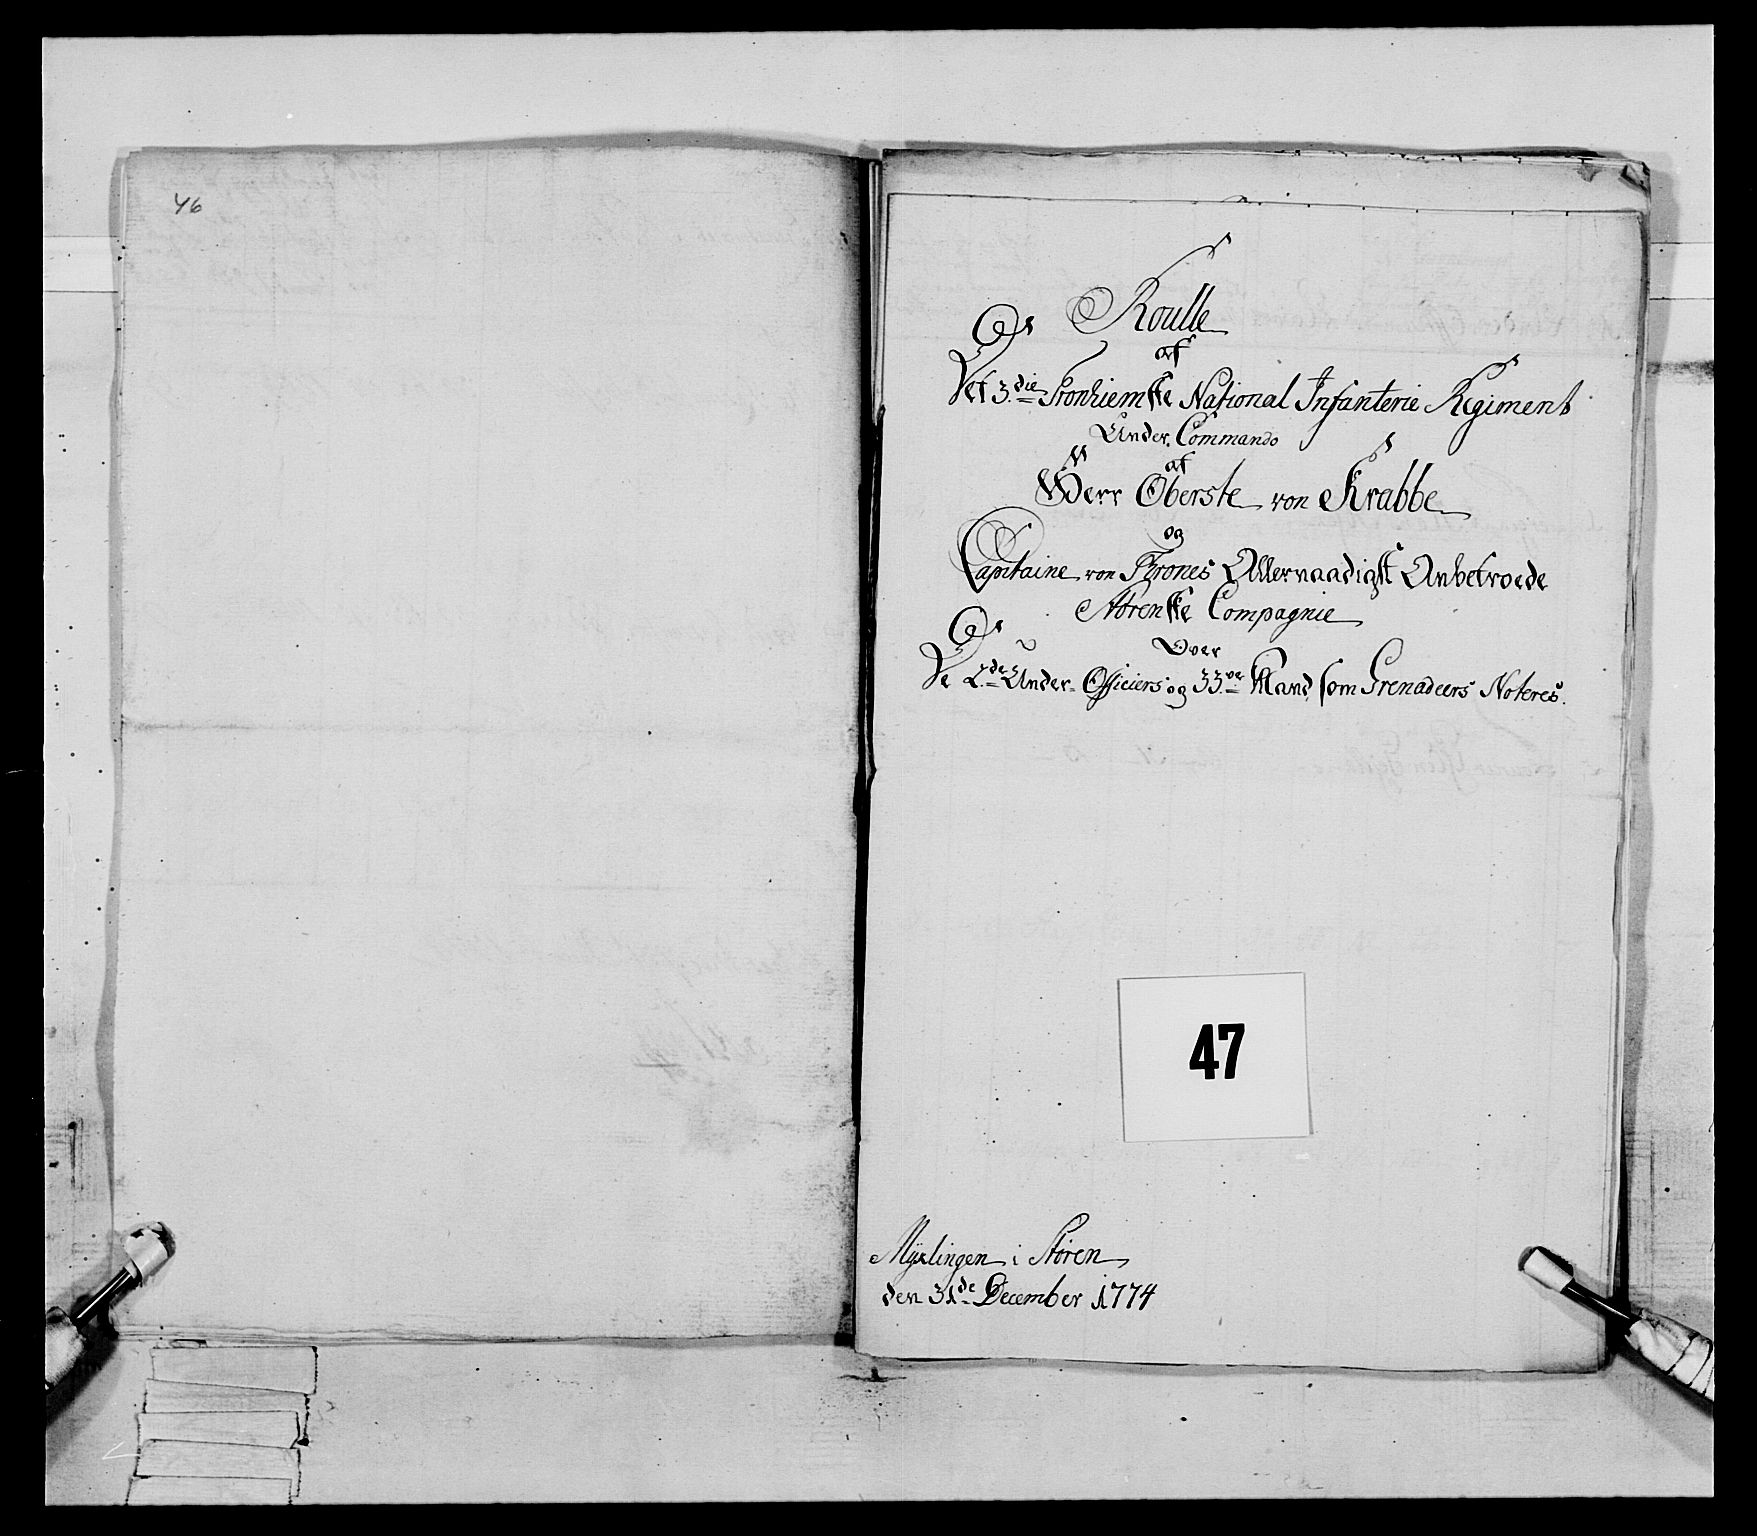 46
Roulle
af
Det 3.die Tronhiemske National Infanterie Regiment
Under Commando
af
Herr Oberste von Krabbe
og
Capitaine von Krones Allernaadigst Anbetroede
Størenske Compagnie
Over
De 2.de Under-Officiers og 33.ve Mand som Grenadeers Noteres.
47
i Støren
den 31.de December 1774